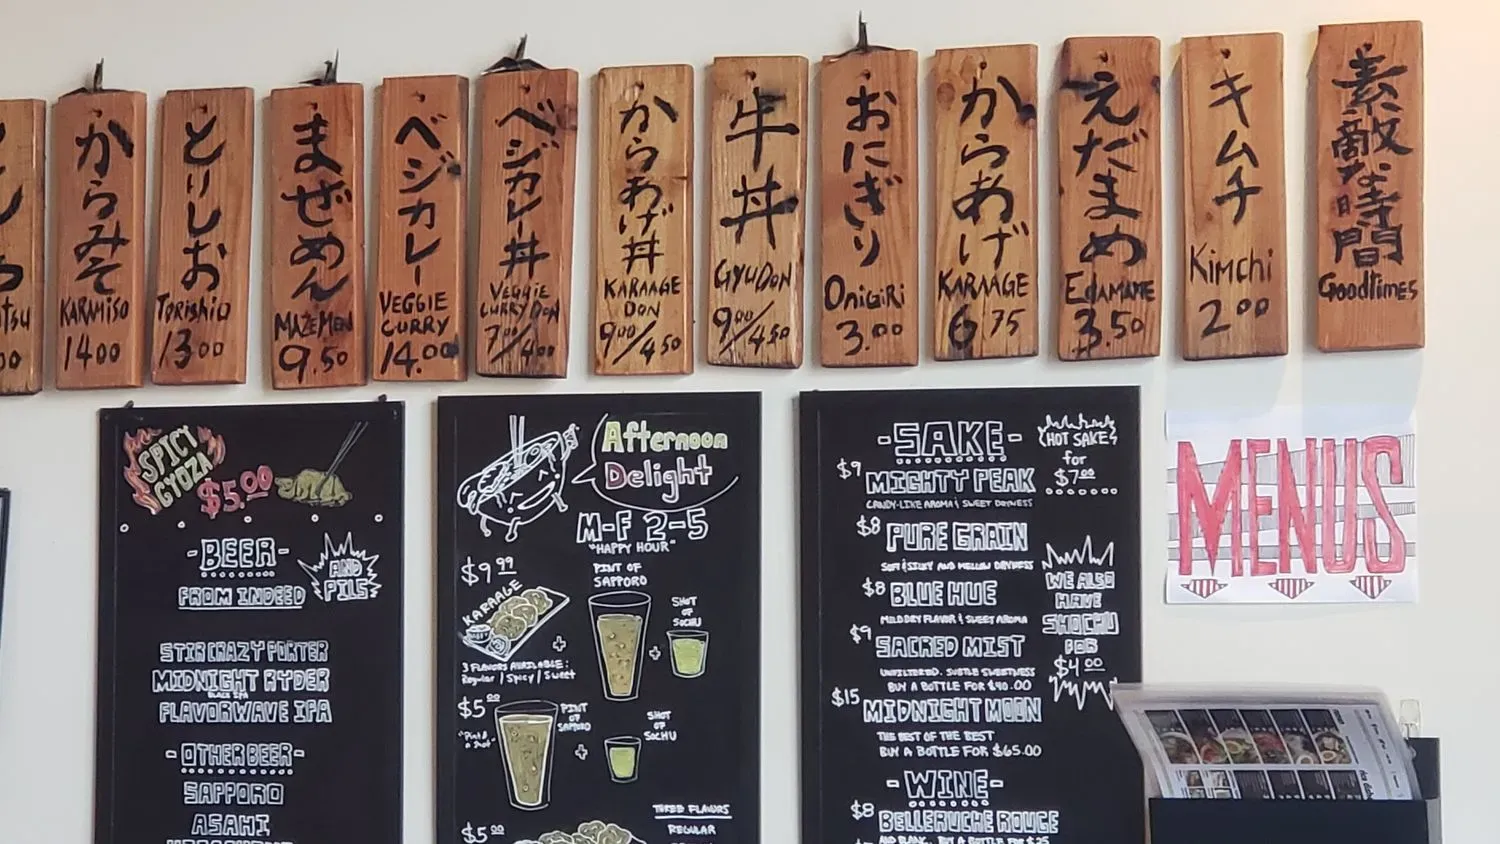 からみそ
KARAMISO
1400
とりしお
TORISHIO
1300
まぜめん
MAZEMEN
9.50
ベジカレー
VEGGIE
CURRY
14.00
ベジカレー丼
VEGGIE
CURRY DON
700/400
からあげ丼
KARAAGE
DON
900/450
牛丼
GYUDON
900/450
おにぎり
ONiGiRi
3.00
からあげ
KARAAGE
6 75
えだまめ
EDAMAME
3.50
キムチ
KiMCHi
200
素敵な時間
GOODTIMES
SPICY
GYOZA
$5.00
-BEER-
FROM INDEED
AND
PILS
STIR CRAZY PORTER
MIDNIGHT RYDER
BLACK IPA
FLAVORWAVE IPA
-OTHER BEER-
SAPPORO
ASAHI
Afternoon
Delight
M-F 2-5
"HAPPY HOUR"
$9 99
KARAAGE
3 FLAVORS AVAILABLE:
Regular / Spicy / Sweet
+
PINT OF
SAPPORO
+
SHOT
OF
SOCHU
$5 00
"Pint &
a Shot"
PINT
OF
SAPPORO
+
SHOT
OF
SOCHU
$5 00
THREE FLAVORS
REGULAR
-SAKE-
HOT SAKE
for
$7 00
$9 MIGHTY PEAK
CANDY-LIKE AROMA & SWEET DRYNESS
$8 PURE GRAIN
SOFT & SILKY AND MELLOW DRYNESS
$8 BLUE HUE
MILD DRY FLAVOR & SWEET AROMA
$9 SACRED MIST
UNFILTERED. SUBTLE SWEETNESS
BUY A BOTTLE FOR $40.00
$15 MIDNIGHT MOON
THE BEST OF THE BEST
BUY A BOTTLE FOR $65.00
WE ALSO
HAVE
SHOCHU
FOR
$4 00
-WINE-
$8 BELLERUCHE ROUGE
MENUS